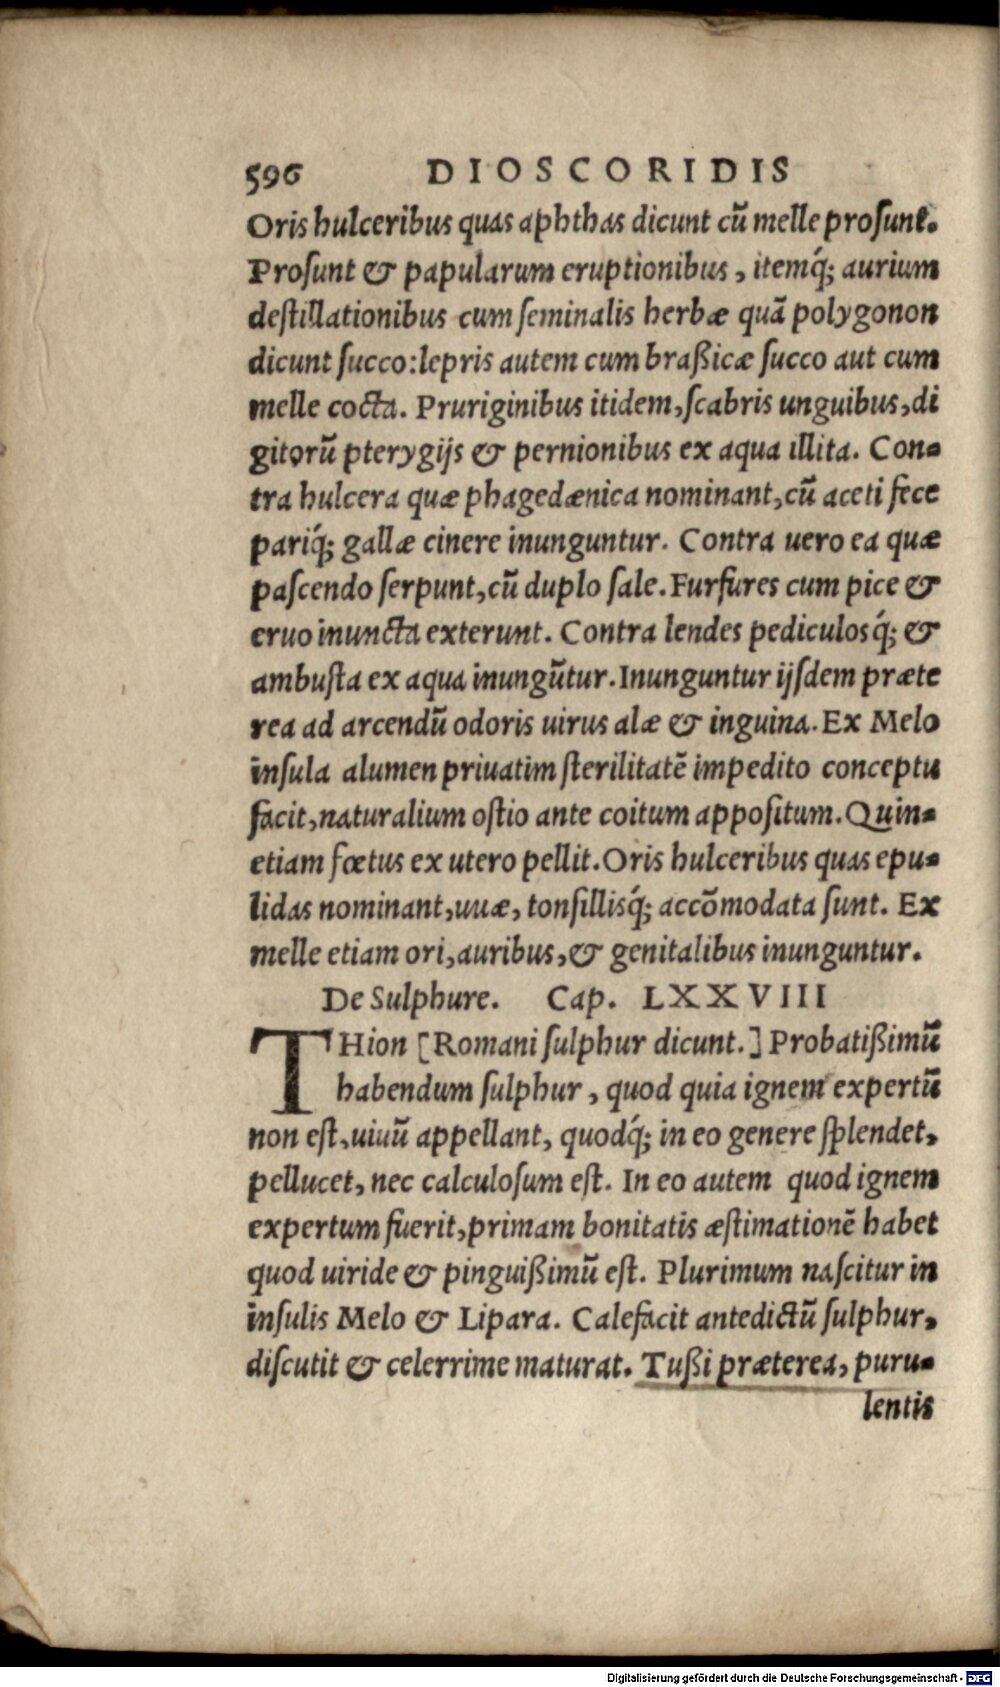 596 DIOSCORIDIS
Oris hulceribus quas aphthas dicunt cũ melle prosunt.
Prosunt & papularum eruptionibus, itemq́; aurium
destillationibus cum seminalis herbæ quã polygonon
dicunt succo: lepris autem cum braßicæ succo aut cum
melle cocta. Pruriginibus itidem, scabris unguibus, di
gitorũ pterygijs & pernionibus ex aqua illita. Con-
tra hulcera quæ phagedænica nominant, cũ aceti fece
pariq́; gallæ cinere inunguntur. Contra uero ea quæ
pascendo serpunt, cũ duplo sale. Furfures cum pice &
eruo inuncta exterunt. Contra lendes pediculosq́; &
ambusta ex aqua inungũtur. Inunguntur ijsdem præte
rea ad arcendũ odoris uirus alæ & inguina. Ex Melo
insula alumen priuatim sterilitatẽ impedito conceptu
facit, naturalium ostio ante coitum appositum. Quin-
etiam fœtus ex utero pellit. Oris hulceribus quas epu-
lidas nominant, uuæ, tonsillisq́; accõmodata sunt. Ex
melle etiam ori, auribus, & genitalibus inunguntur.
De Sulphure. Cap. LXXVIII
THion [Romani sulphur dicunt.] Probatißimũ
habendum sulphur, quod quia ignem expertũ
non est, uiuũ appellant, quodq́; in eo genere splendet,
pellucet, nec calculosum est. In eo autem quod ignem
expertum fuerit, primam bonitatis æstimationẽ habet
quod uiride & pinguißimũ est. Plurimum nascitur in
insulis Melo & Lipara. Calefacit antedictũ sulphur,
discutit & celerrime maturat. Tußi præterea, puru-
lentis
Digitalisierung gefördert durch die Deutsche Forschungsgemeinschaft - DFG